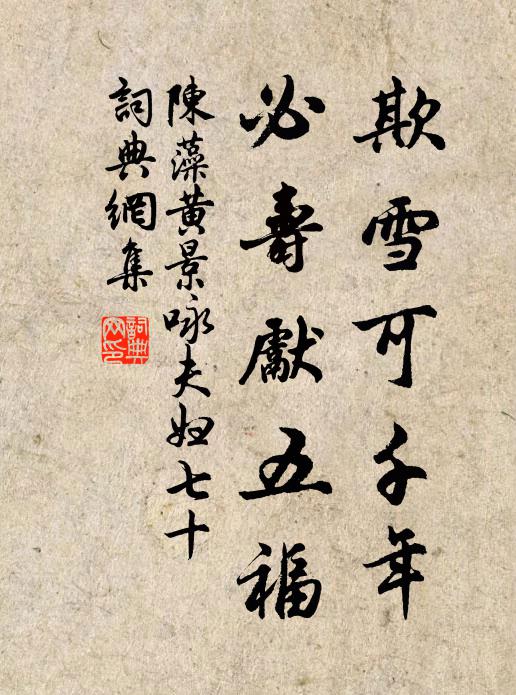 欺雪可千年
必壽獻五福
陳藻黄景咏夫妇七十
詞典網集
詞典
网印